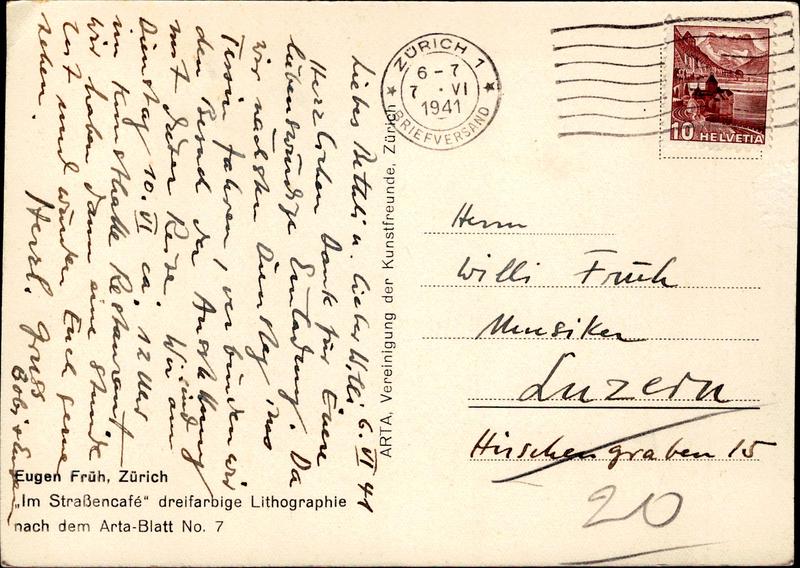 Liebes u. lieber Willi 6. VI 41
Herzlichen Dank für Eure
liebenswürdige Einladung. Da
wir nächsten Dienstag ins
Tessin fahren, verbinden wir
den Besuch der Ausstellung
mit Reise. Wir sind am
Dienstag 10. VI ca. 12 Uhr
im Kunsthalle Restaurant
wir haben dann eine Stunde
Zeit und würden Euch gerne
sehen.
Herzl. Gruss
Eugen
Eugen Früh, Zürich
„Im Straßencafé“ dreifarbige Lithographie
nach dem Arta-Blatt No. 7
ARTA, Vereinigung der Kunstfreunde, Zürich
ZÜRICH 1
6-7
7. VI
1941
BRIEFVERSAND
10 HELVETIA
Herrn
Willi Früh
Musiker
Luzern
Hirschengraben 15
20